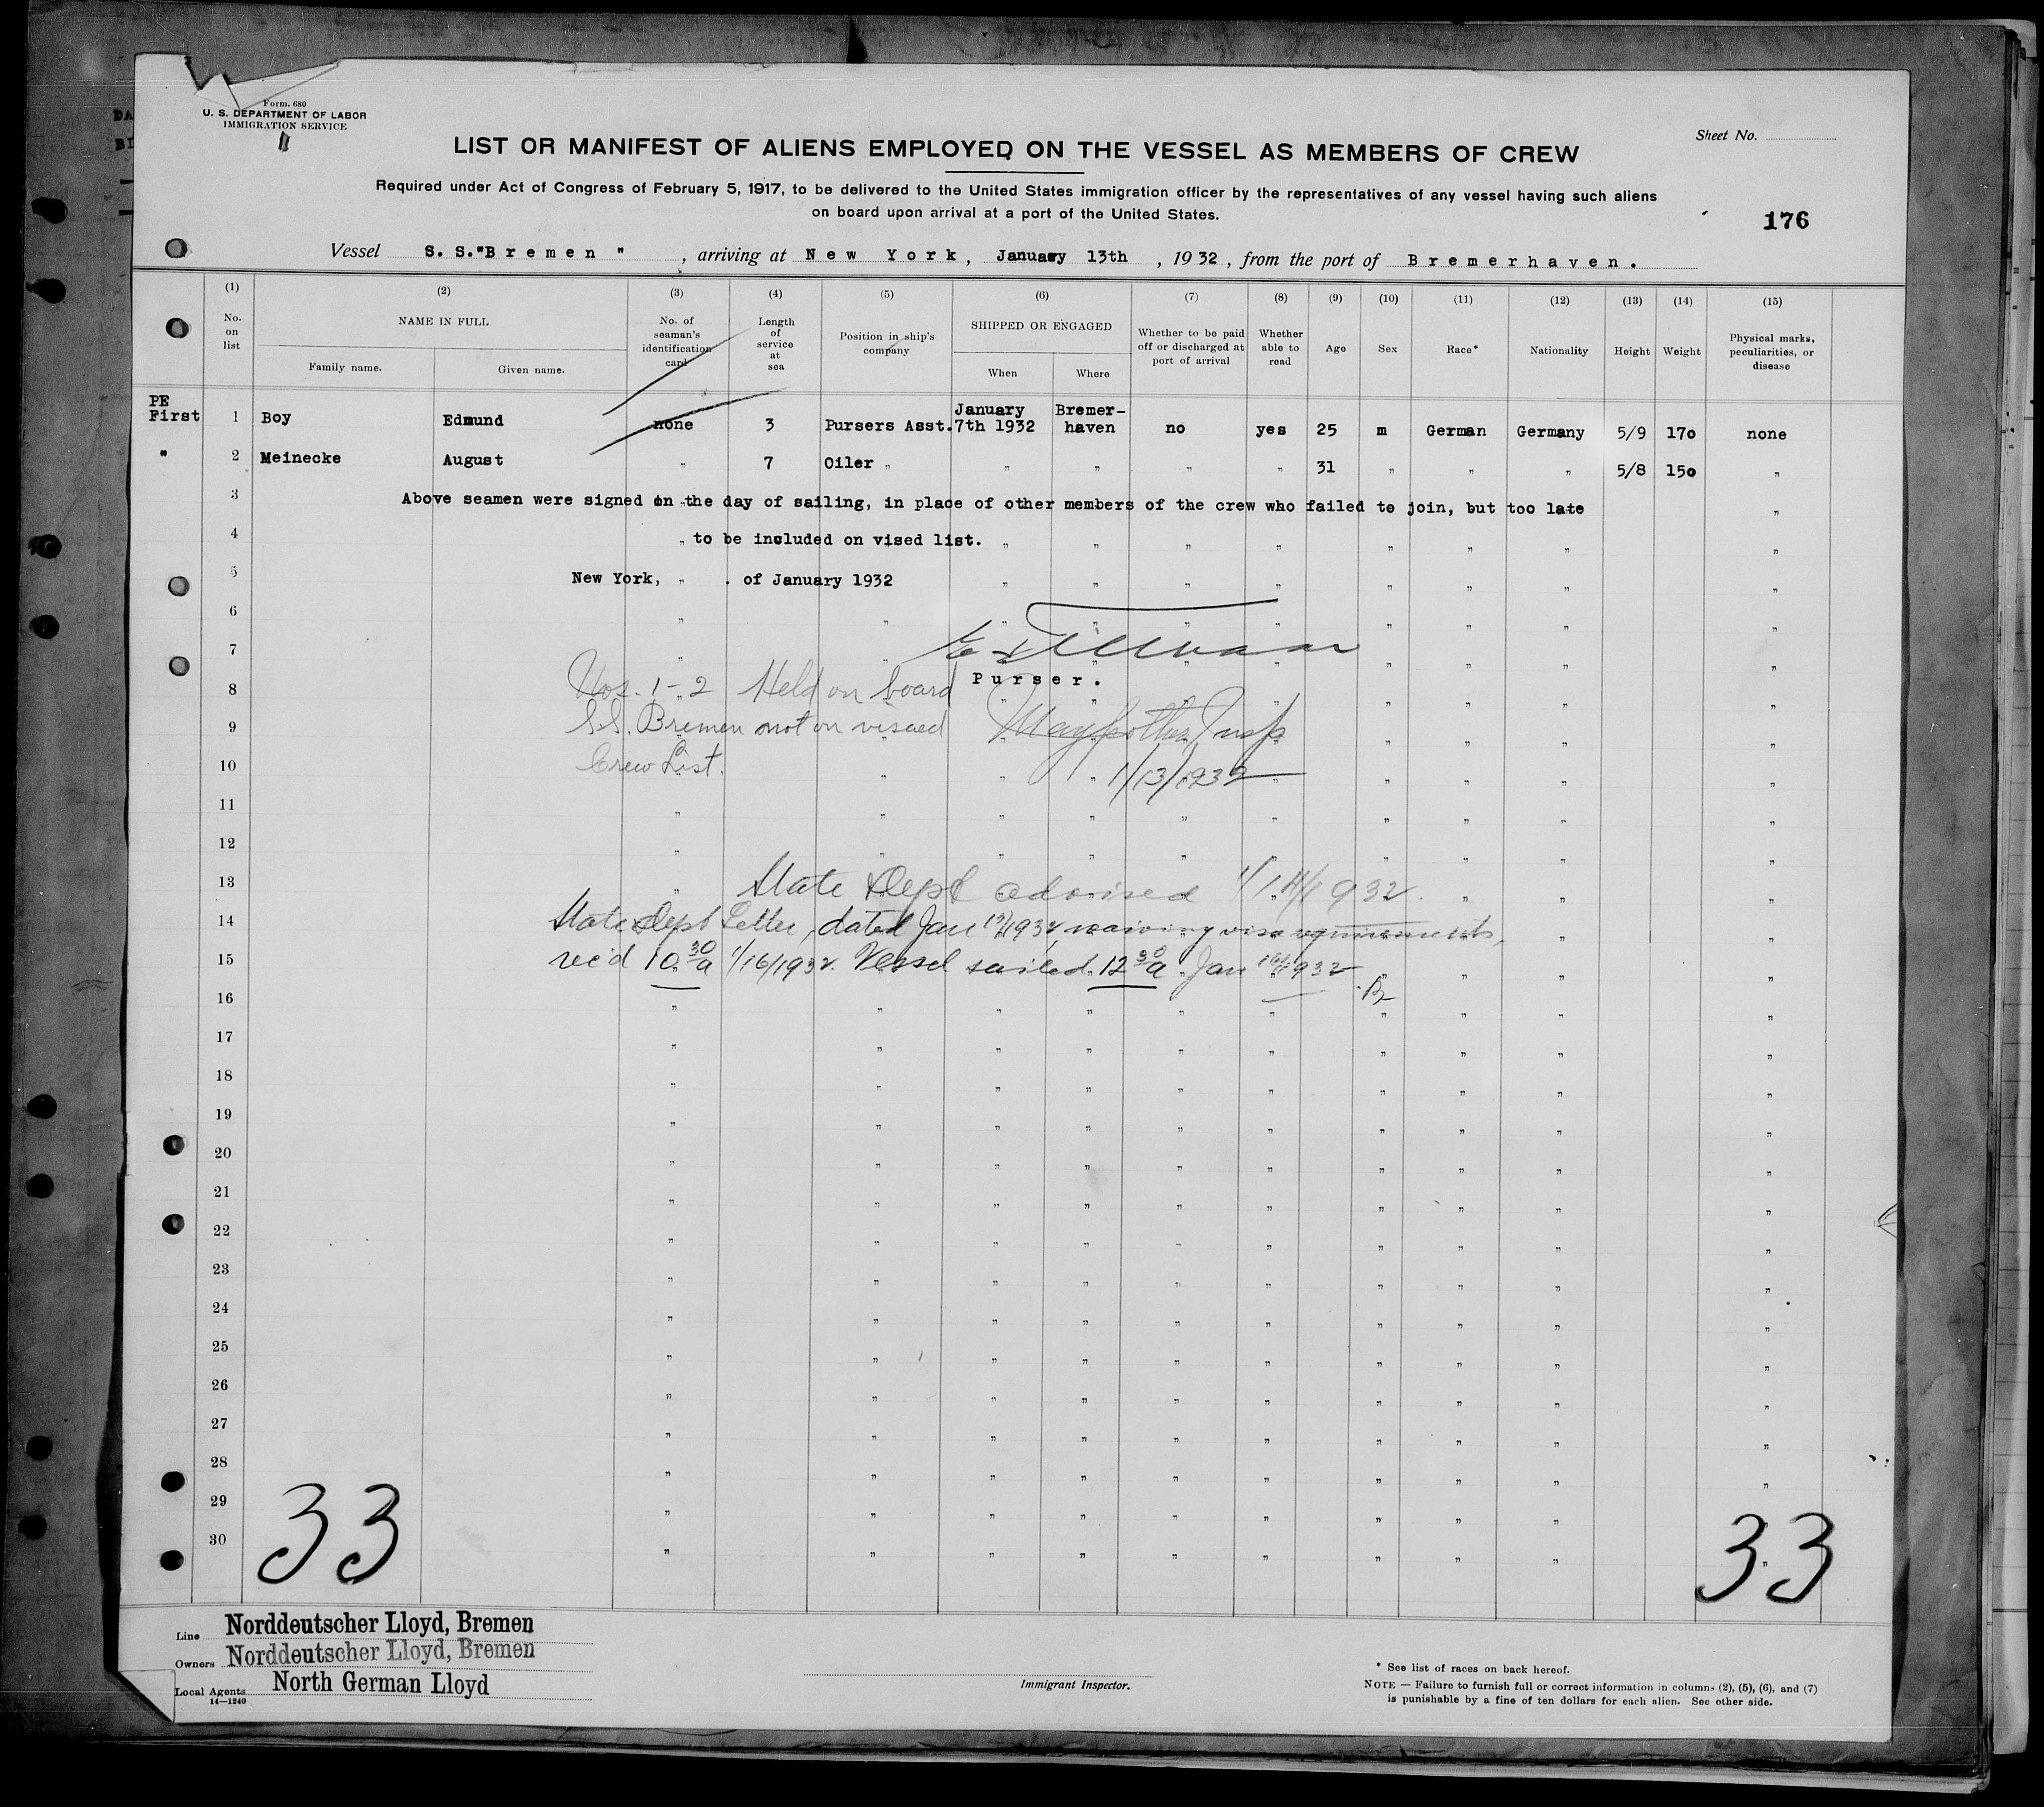 Form. 680
U. S. DEPARTMENT OF LABOR
IMMIGRATION SERVICE
Sheet No.
LIST OR MANIFEST OF ALIENS EMPLOYED ON THE VESSEL AS MEMBERS OF CREW
Required under Act of Congress of February 5, 1917, to be delivered to the United States immigration officer by the representatives of any vessel having such aliens
on board upon arrival at a port of the United States.
176
Vessel S. S. "Bremen", arriving at New York, January 13th, 1932, from the port of Bremerhaven.
(1) (2) (3) (4) (5) (6) (7) (8) (9) (10) (11) (12) (13) (14) (15)
No. on list
NAME IN FULL
Family name. Given name.
No. of seaman's identification card
Length of service at sea
Position in ship's company
SHIPPED OR ENGAGED
When Where
Whether to be paid off or discharged at port of arrival
Whether able to read
Age
Sex
Race*
Nationality
Height
Weight
Physical marks, peculiarities, or disease
PE First 1 Boy Edmund none 3 Pursers Asst. January 7th 1932 Bremer-haven no yes 25 m German Germany 5/9 170 none
" 2 Meinecke August " 7 Oiler " " " " " 31 " " " 5/8 150 "
3 Above seamen were signed on the day of sailing, in place of other members of the crew who failed to join, but too late
4 to be included on vised list.
5 New York, . of January 1932
6
7
8 Purser.
Nos. 1-2 Held on board
9 S.S. Bremen not on visaed
10 Crew List.
Insp
1/13/1932
11
12
13 State Dept advised 1/14/1932.
14 State Dept Letter, dated Jan 1932, waiving visa requirements,
15 rec'd 10 30 a 1/16/1932. Vessel sailed 12 30 a Jan 16/1932
16
17
18
19
20
21
22
23
24
25
26
27
28
29
30
33
33
Line Norddeutscher Lloyd, Bremen
Owners Norddeutscher Lloyd, Bremen
Local Agents North German Lloyd
14—1240
Immigrant Inspector.
* See list of races on back hereof.
NOTE — Failure to furnish full or correct information in columns (2), (5), (6), and (7)
is punishable by a fine of ten dollars for each alien. See other side.